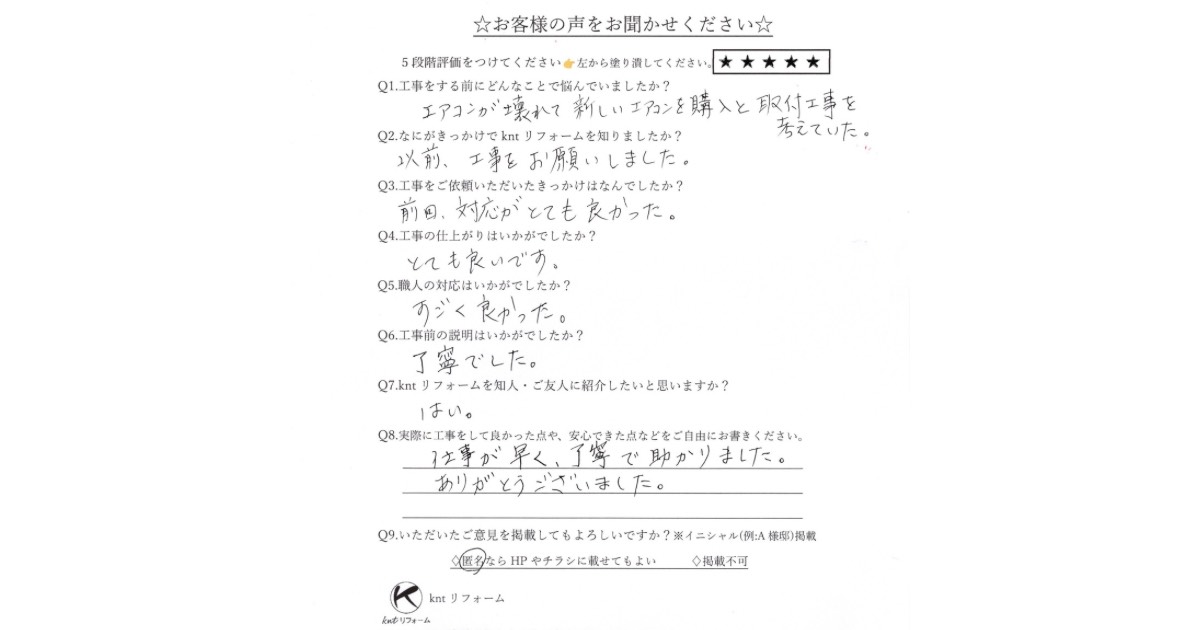 ☆お客様の声をお聞かせください☆
5段階評価をつけてください👉左から塗り潰してください。★★★★★
Q1.工事をする前にどんなことで悩んでいましたか？
エアコンが壊れて新しいエアコンを購入と取付工事を
考えていた。
Q2.なにがきっかけでkntリフォームを知りましたか？
以前、工事をお願いしました。
Q3.工事をご依頼いただいたきっかけはなんでしたか？
前回、対応がとても良かった。
Q4.工事の仕上がりはいかがでしたか？
とても良いです。
Q5.職人の対応はいかがでしたか？
すごく良かった。
Q6.工事前の説明はいかがでしたか？
丁寧でした。
Q7.kntリフォームを知人・ご友人に紹介したいと思いますか？
はい。
Q8.実際に工事をして良かった点や、安心できた点などをご自由にお書きください。
仕事が早く、丁寧で助かりました。
ありがとうございました。
Q9.いただいたご意見を掲載してもよろしいですか？※イニシャル(例:A様邸)掲載
◇匿名ならHPやチラシに載せてもよい ◇掲載不可
kntリフォーム
kntリフォーム